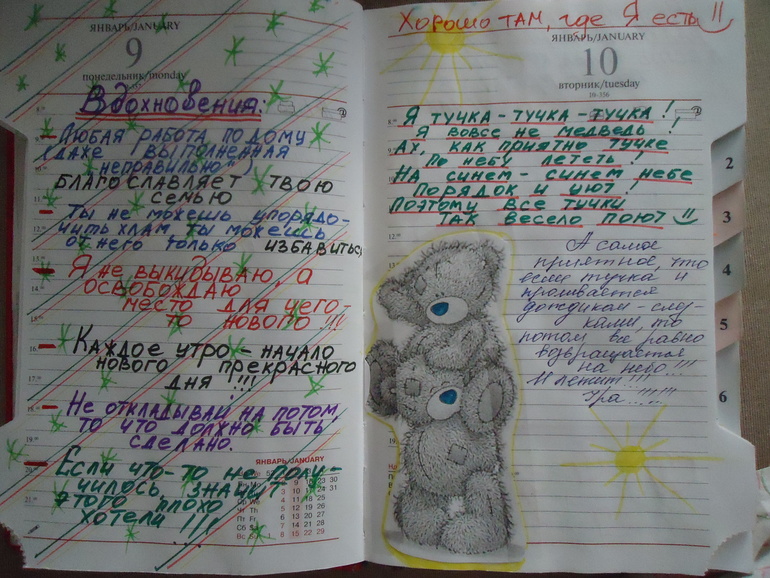 ЯНВАРЬ/JANUARY
9
понедельник/monday
Вдохновения:
Любая работа по дому
(даже "выполненная
неправильно")
благославляет твою
семью
Ты не можешь упорядо-
чить хлам, ты можешь
от него только избавиться
Я не выкидываю, а
освобождаю
место для чего-
то нового!!!
Каждое утро – начало
нового прекрасного
дня!!!
Не откладывай на потом,
то что должно быть
сделано.
Если что-то не полу-
чилось, значит
этого плохо
хотели!!!
ЯНВАРЬ/JANUARY
Хорошо там, где Я есть
ЯНВАРЬ/JANUARY
10
вторник/tuesday
Я тучка-тучка-тучка!
Я вовсе не медведь!
Ах, как приятно тучке
По небу лететь!
На синем-синем небе
порядок и уют!
Поэтому все тучки
так весело поют
А самое
приятное, что
если тучка и
проливается
дождиком-слез-
ками, то
потом все равно
возвращается
на небо!!!
И летит!!!
Ура...!!!!
2
3
4
5
6